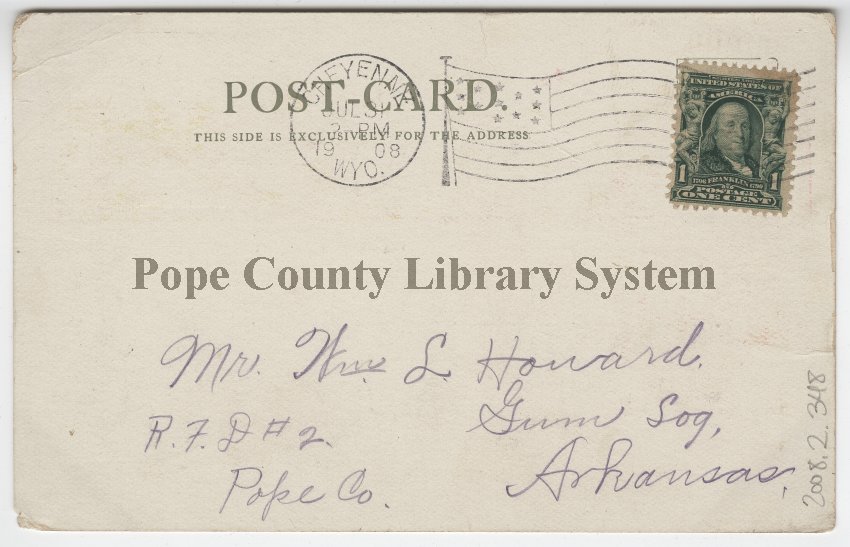 POST-CARD.
THIS SIDE IS EXCLUSIVELY FOR THE ADDRESS
CHEYENNE
JUL 31
2 PM
19 08
WYO.
UNITED STATES OF
AMERICA
1706 FRANKLIN 1790
1 POSTAGE 1
ONE CENT
Pope County Library System
Mr. Wm. L. Howard.
R.F.D #2. Gum Log,
Pope Co. Arkansas,
2008.2.348